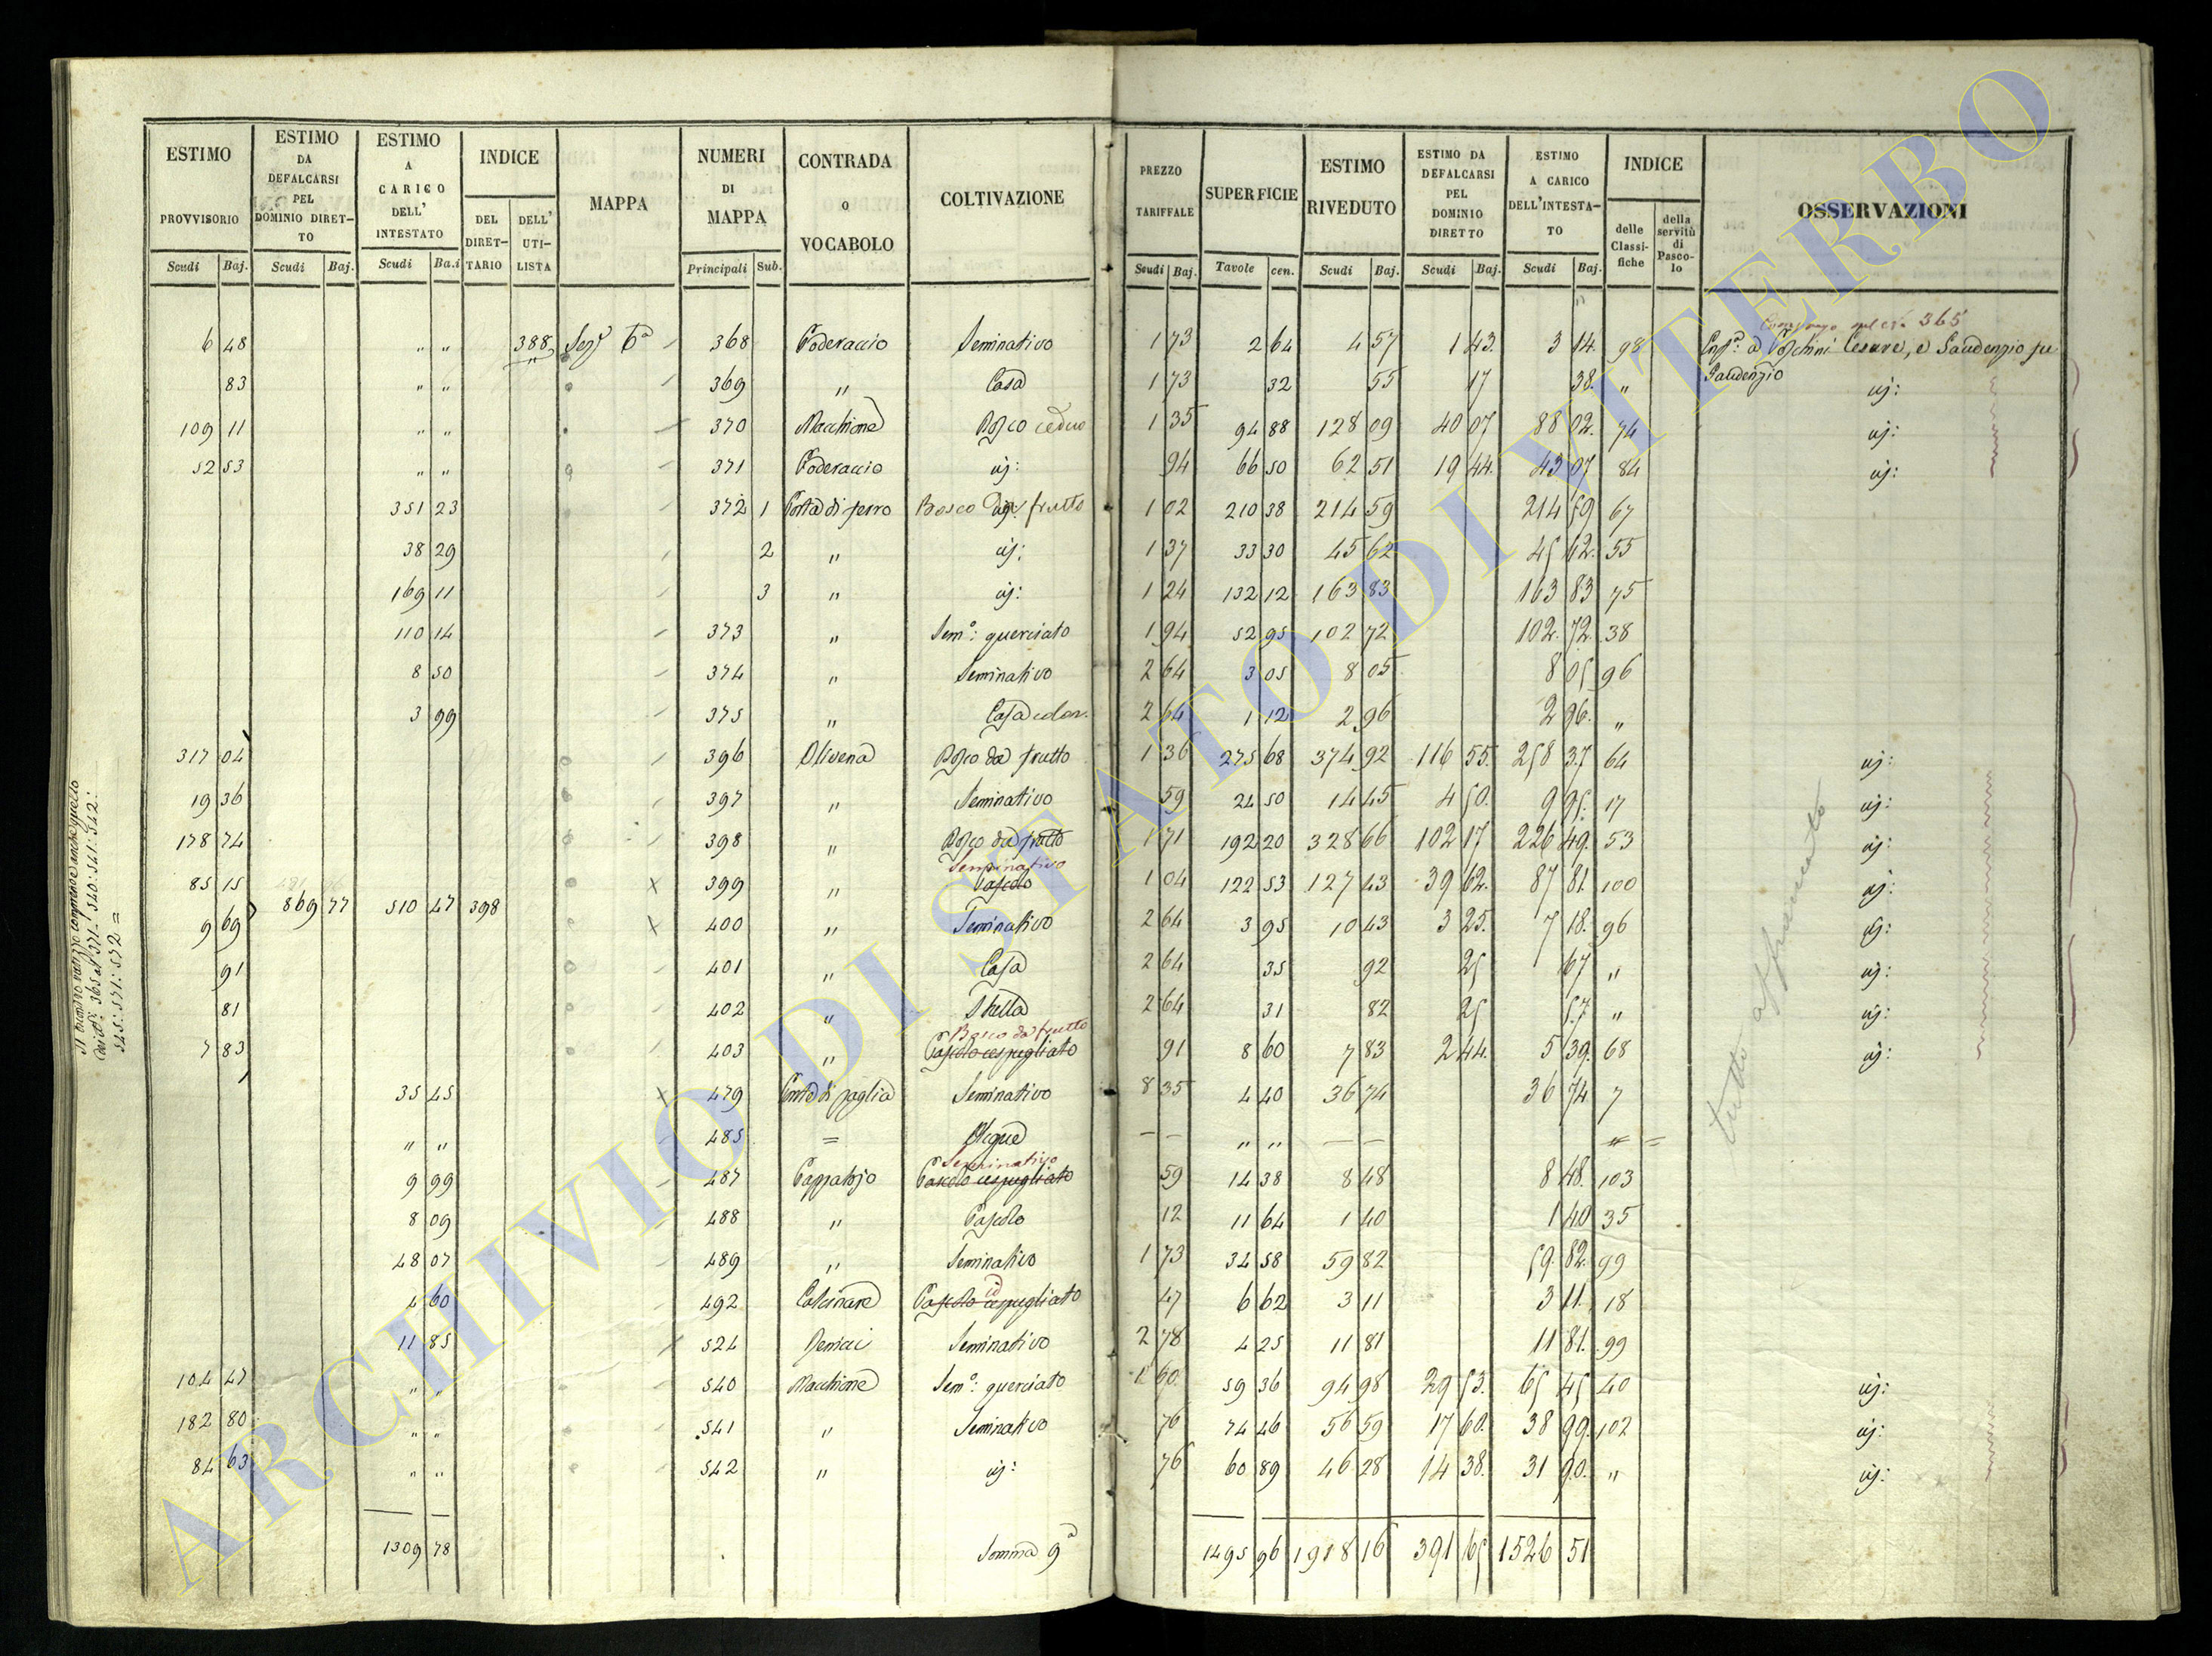 ESTIMO PROVVISORIO Scudi Baj.
ESTIMO DA DEFALCARSI PEL DOMINIO DIRETTO Scudi Baj.
ESTIMO A CARICO DELL' INTESTATO Scudi Ba.i
INDICE DEL DIRETTARIO DELL' UTILISTA
MAPPA
NUMERI DI MAPPA Principali Sub.
CONTRADA O VOCABOLO
COLTIVAZIONE
PREZZO TARIFFALE Scudi Baj.
SUPERFICIE Tavole cen.
ESTIMO RIVEDUTO Scudi Baj.
ESTIMO DA DEFALCARSI PEL DOMINIO DIRETTO Scudi Baj.
ESTIMO A CARICO DELL'INTESTATO Scudi Baj.
INDICE delle Classifiche della servitù di Pascolo
OSSERVAZIONI
365
6 48 " " 388 Sezᵉ 6ª 368 Poderaccio Seminativo 1 73 2 64 4 57 1 43 3 14 98 Cesare, e Gaudenzio
83 " " 369 " Casa 1 73 32 55 17 38 " Gaudenzio id:
109 11 " " 370 Macchione Bosco ceduo 1 35 94 88 128 09 40 07 88 02 74 id:
52 53 " " 371 Poderaccio id: 94 66 50 62 51 19 44 43 07 84 id:
351 23 372 1 Porta di ferro Bosco da frutto 1 02 210 38 214 59 214 59 67
38 29 2 " id: 1 37 33 30 45 62 45 62 55
169 11 3 " id: 1 24 132 12 163 83 163 83 75
110 14 373 " Semº: querciato 1 94 52 95 102 72 102 72 38
8 50 374 " Seminativo 2 64 3 05 8 05 8 05 96
3 99 375 " Casa colon. 2 64 1 12 2 96 2 96 "
317 04 396 Olivena Bosco da frutto 1 36 275 68 374 92 116 55 258 37 64 id:
19 36 397 " Seminativo 59 24 50 14 45 4 50 9 95 17 id:
178 74 398 " Bosco da frutto 1 71 192 20 328 66 102 17 226 49 53 id:
Seminativo
85 15 399 " Pascolo 1 04 122 53 127 43 39 62 87 81 100 id:
869 77 510 47 398
9 69 400 " Seminativo 2 64 3 95 10 43 3 25 7 18 96 id:
91 401 " Casa 2 64 35 92 25 67 " id:
81 402 " Stalla 2 64 31 82 25 57 " id:
Bosco da frutto
7 83 403 " Pascolo cespugliato 91 8 60 7 83 2 44 5 39 68 id:
35 45 479 Ponte di paglia Seminativo 8 35 4 40 36 74 36 74 7
" " 485 = Acque — — " " — — " =
Seminativo
9 99 487 Pascolo cespugliato 59 14 38 8 48 8 48 103
8 09 488 " Pascolo 12 11 64 1 40 1 40 35
48 07 489 " Seminativo 1 73 34 58 59 82 59 82 99
4 60 492 Calcinare Pascolo cespugliato 47 6 62 3 11 3 11 18
11 85 524 Seminativo 2 78 4 25 11 81 11 81 99
104 47 " " 540 Macchione Semº: querciato 1 60 59 36 94 98 29 53 65 45 40 id:
182 80 " " 541 " Seminativo 76 74 46 56 59 17 60 38 99 102 id:
84 63 " " 542 " id: 76 60 89 46 28 14 38 31 90 " id:
1309 78 Somma 9ª 1495 96 1918 16 391 65 1526 51
comprende anche quello
365 al 371: 540: 541: 542:
545: 571: 572 =
tutto affrancato
ARCHIVIO DI STATO DI VITERBO